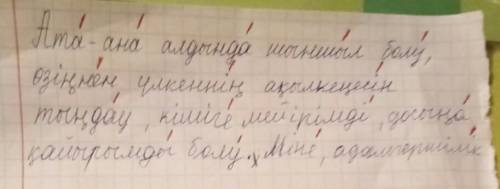 Ата́-ана́ алдында́ шыншы́л болу́,
өзіңне́н үлкенні́ң ақылкеңесі́н
тыңда́у, кішіге́ мейірімді́, досыңа́
қайырымды́ болу́. Міне́, адамгершілі́к